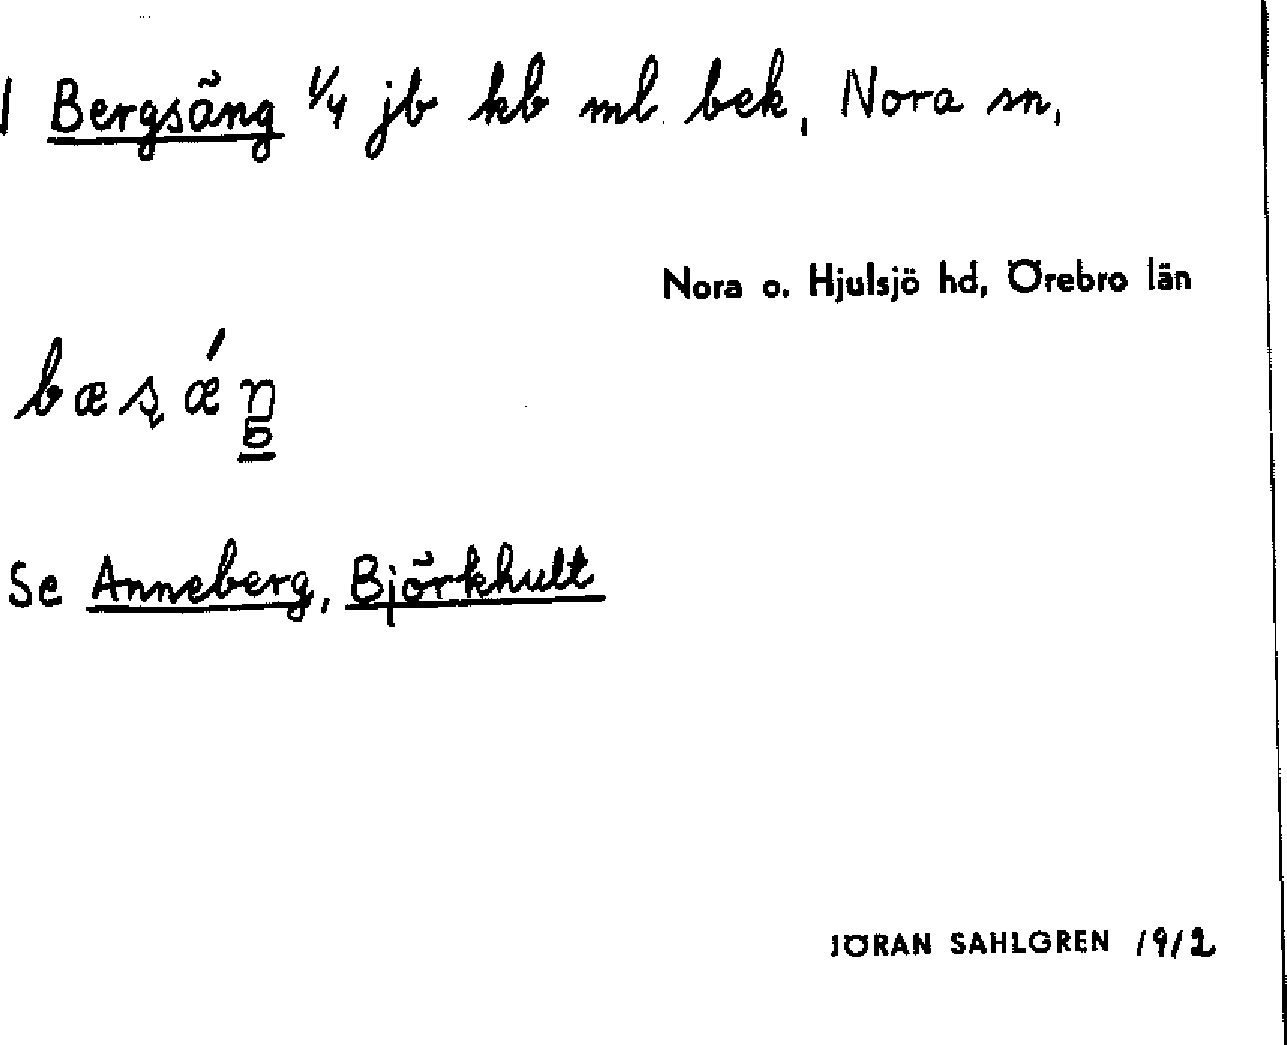 1 Bergsäng 1/4 jb kb ml bek, Nora sn,
Nora o. Hjulsjö hd, Örebro län
Se Anneberg, Björkhult
JÖRAN SAHLGREN 1912